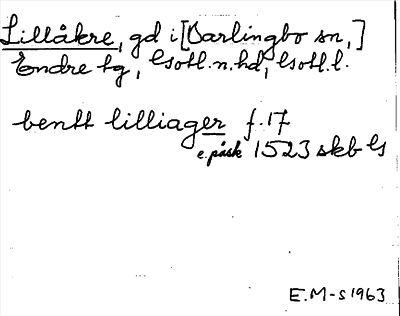 Lillåkre, gd i [Barlingbo sn,]
Endre tg, Gotl.n.hd, Gotl.l.
bentt lilliager f.17
e. påsk 1523 skb G
E.M-s 1963